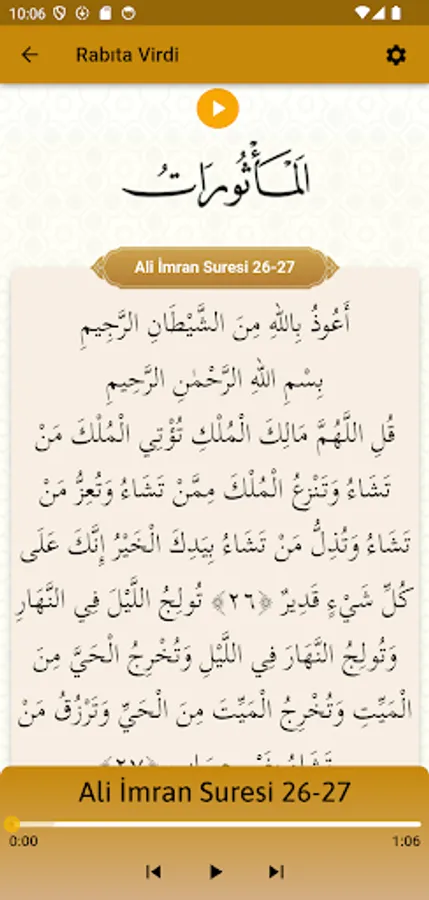 10:06
Rabıta Virdi
الْمَأْثُورَاتُ
Ali İmran Suresi 26-27
أَعُوذُ بِاللهِ مِنَ الشَّيْطَانِ الرَّجِيمِ
بِسْمِ اللهِ الرَّحْمٰنِ الرَّحِيمِ
قُلِ اللَّهُمَّ مَالِكَ الْمُلْكِ تُؤْتِي الْمُلْكَ مَنْ
تَشَاءُ وَتَنْزِعُ الْمُلْكَ مِمَّنْ تَشَاءُ وَتُعِزُّ مَنْ
تَشَاءُ وَتُذِلُّ مَنْ تَشَاءُ بِيَدِكَ الْخَيْرُ إِنَّكَ عَلَى
كُلِّ شَيْءٍ قَدِيرٌ ﴿٢٦﴾ تُولِجُ اللَّيْلَ فِي النَّهَارِ
وَتُولِجُ النَّهَارَ فِي اللَّيْلِ وَتُخْرِجُ الْحَيَّ مِنَ
الْمَيِّتِ وَتُخْرِجُ الْمَيِّتَ مِنَ الْحَيِّ وَتَرْزُقُ مَنْ
Ali İmran Suresi 26-27
0:00
1:06